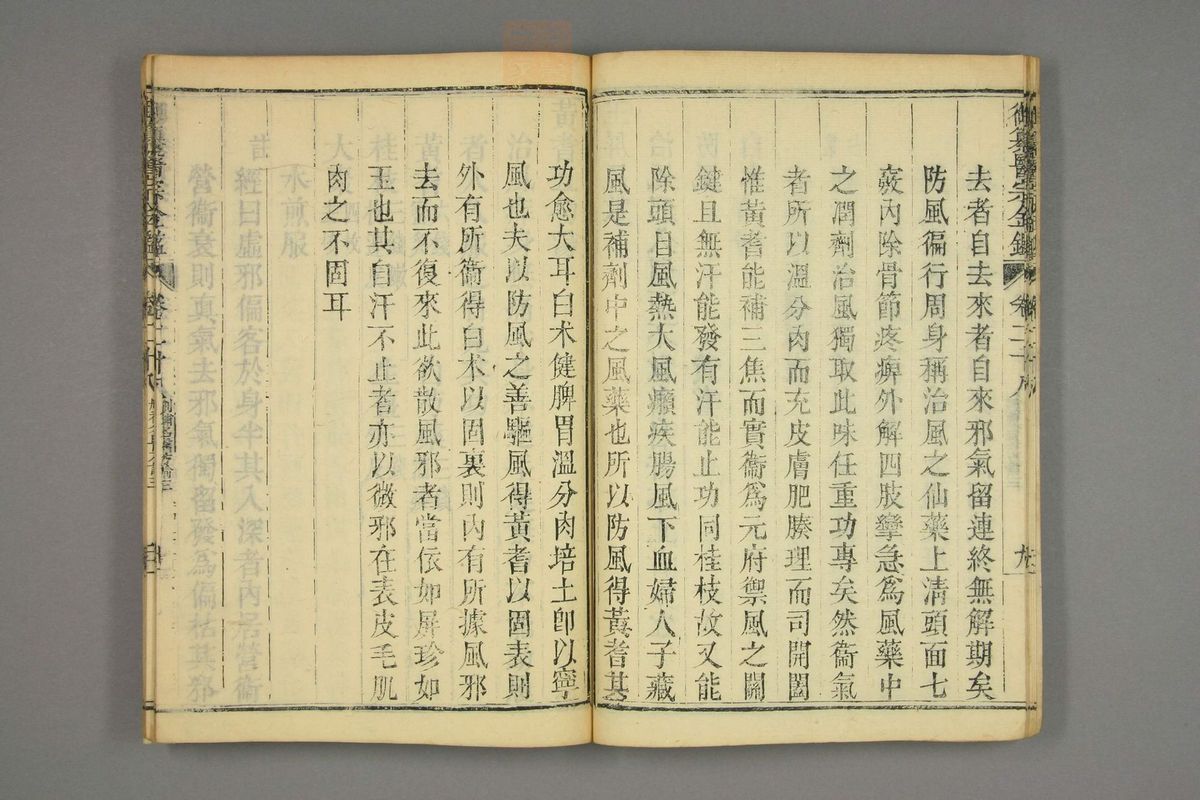 去者自去來者自來邪氣留連終無解期矣
防風徧行周身稱治風之仙藥上清頭面七
竅內除骨節疼痺外解四肢攣急爲風藥中
之潤劑治風獨取此味任重功專矣然衞氣
者所以溫分肉而充皮膚肥腠理而司開闔
惟黃耆能補三焦而實衞爲元府禦風之關
鍵且無汗能發有汗能止功同桂枝故又能
除頭目風熱大風癩疾腸風下血婦人子藏
風是補劑中之風藥也所以防風得黃耆其
功愈大耳白朮健脾胃溫分肉培土卽以寧
風也夫以防風之善驅風得黃耆以固表則
外有所衞得白朮以固裏則內有所據風邪
去而不復來此欲散風邪者當依如屏珍如
玉也其自汗不止者亦以微邪在表皮毛肌
肉之不固耳
御纂醫宗金鑑
卷二十八
九
御纂醫宗金鑑